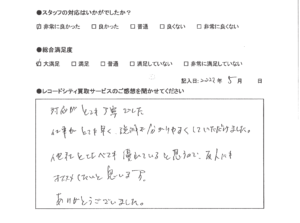 ●スタッフの対応はいかがでしたか？
☑ 非常に良かった □ 良かった □ 普通 □ 良くない □ 非常に良くない
●総合満足度
☑ 大満足 □ 満足 □ 普通 □ 満足していない □ 非常に満足していない
記入日: 2023 年 5 月 日
●レコードシティ買取サービスのご感想を聞かせてください
対応がとても丁寧でした
仕事がとても早く 説明も分かりやすくしていただけました。
他社とくらべても優れていると思うので、友人にも
オススメしたいと思います。
ありがとうございました。